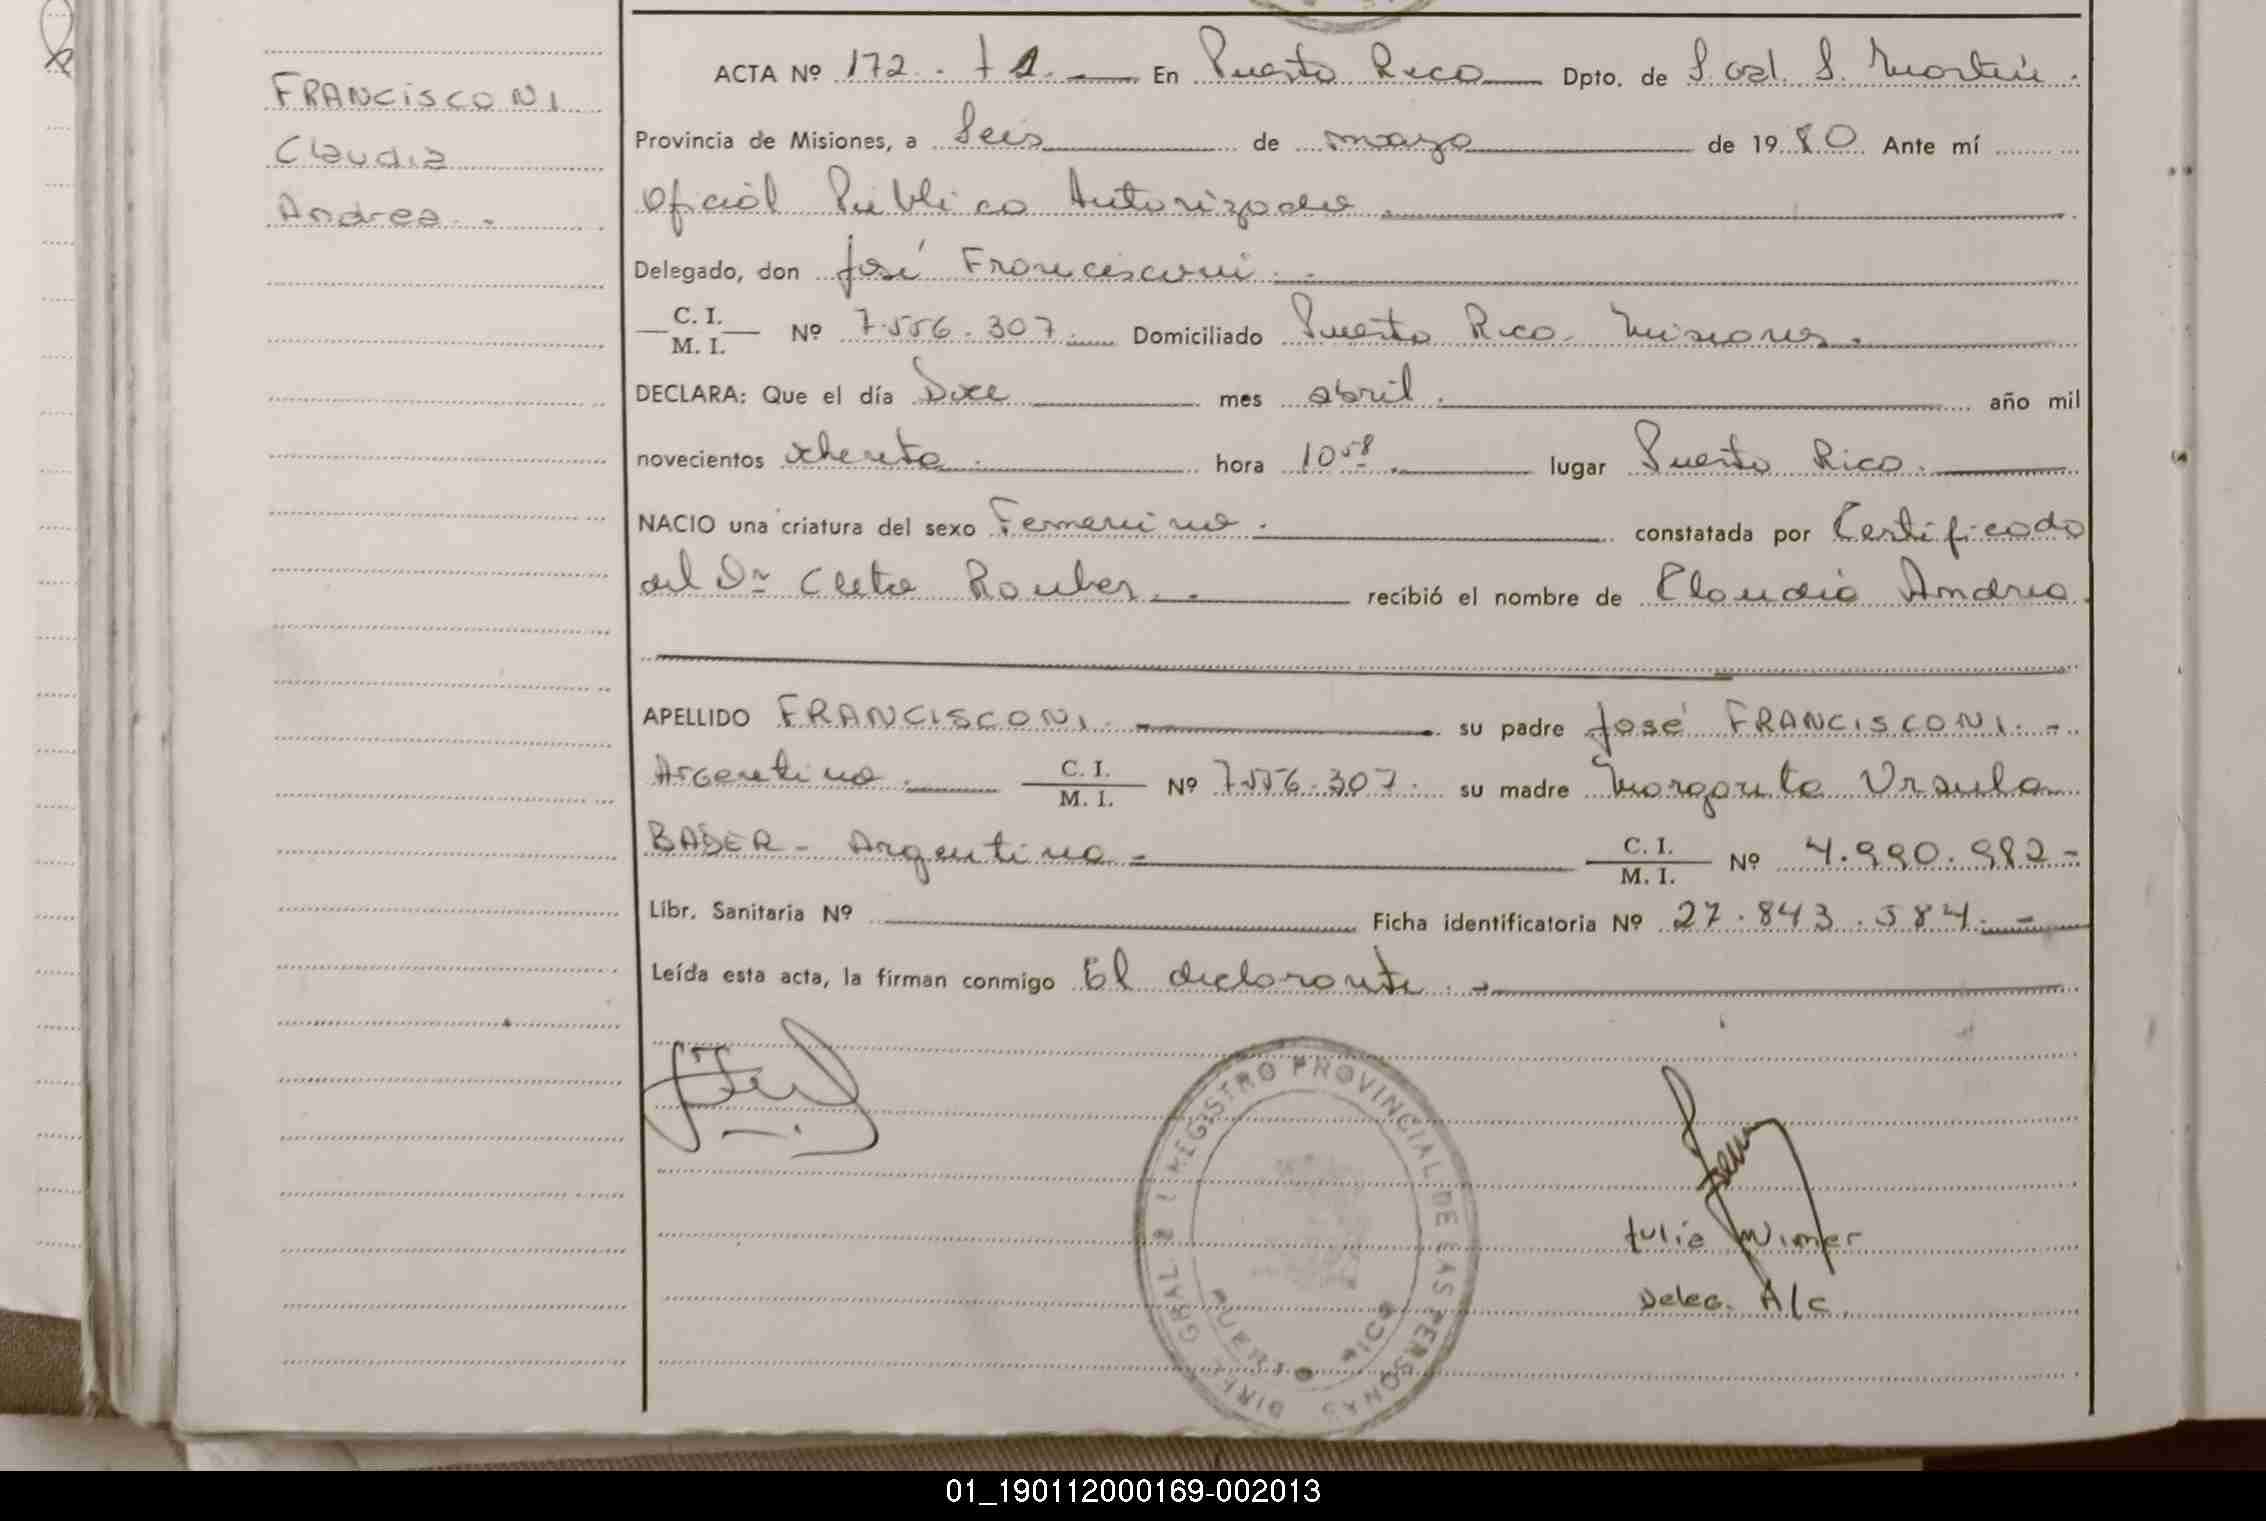 FRANCISCONI
Claudia
Andrea.
ACTA Nº 172. T 1. En Puerto Rico Dpto. de L. Gral. S. Martín.
Provincia de Misiones, a Seis de mayo de 1980 Ante mí
Oficial Público Autorizado
Delegado, don José Francisconi
C. I.
M. I.
Nº 7.556.307 Domiciliado Puerto Rico. Misiones.
DECLARA: Que el día Doce mes abril. año mil
novecientos ochenta hora 10 58 lugar Puerto Rico.
NACIO una criatura del sexo Femenino. constatada por Certificado
del Dr Cleto Rauber. recibió el nombre de Claudia Andrea.
APELLIDO FRANCISCONI. su padre José FRANCISCONI.-
Argentino. C. I.
M. I.
Nº 7.556.307. su madre Margarita Ursula
BADER - Argentina - C. I.
M. I.
Nº 4.990.982-
Libr. Sanitaria Nº Ficha identificatoria Nº 27.843.584.-
Leída esta acta, la firman conmigo El declarante.-
DIREC. GRAL. DEL REGISTRO PROVINCIAL DE LAS PERSONAS
PUERTO RICO
Julia Wimer
Deleg. A/c
01_190112000169-002013